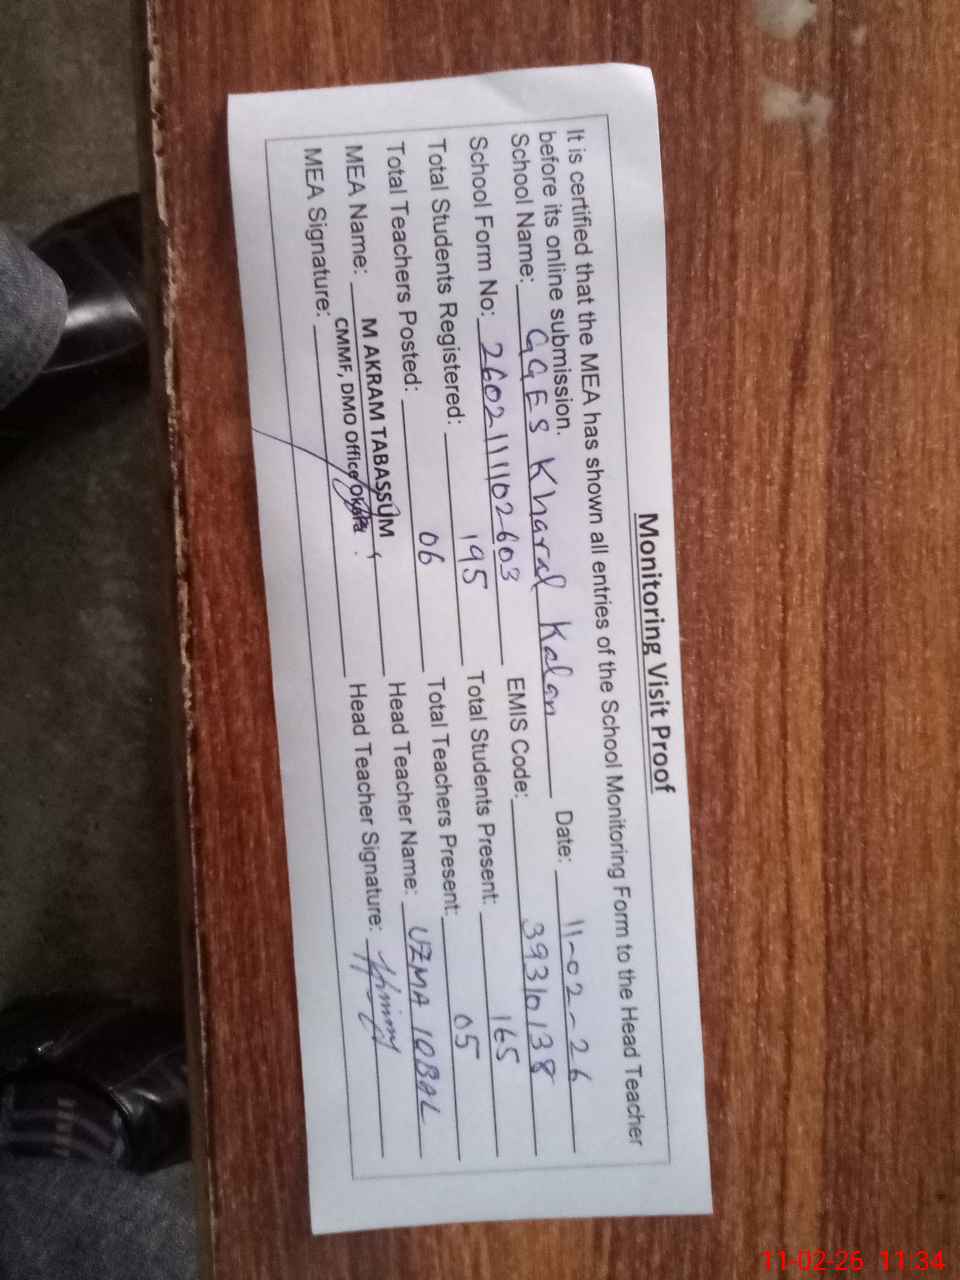 Monitoring Visit Proof
It is certified that the MEA has shown all entries of the School Monitoring Form to the Head Teacher
before its online submission.
School Name: GGES Kharal Kalan Date: 11-02-26
School Form No: 2602111102603 EMIS Code: 39310138
Total Students Registered: 195 Total Students Present: 165
Total Teachers Posted: 06 Total Teachers Present: 05
MEA Name: M AKRAM TABASSUM Head Teacher Name: UZMA IQBAL
CMMF, DMO Office Okara
MEA Signature: Head Teacher Signature:
11-02-26 11:34